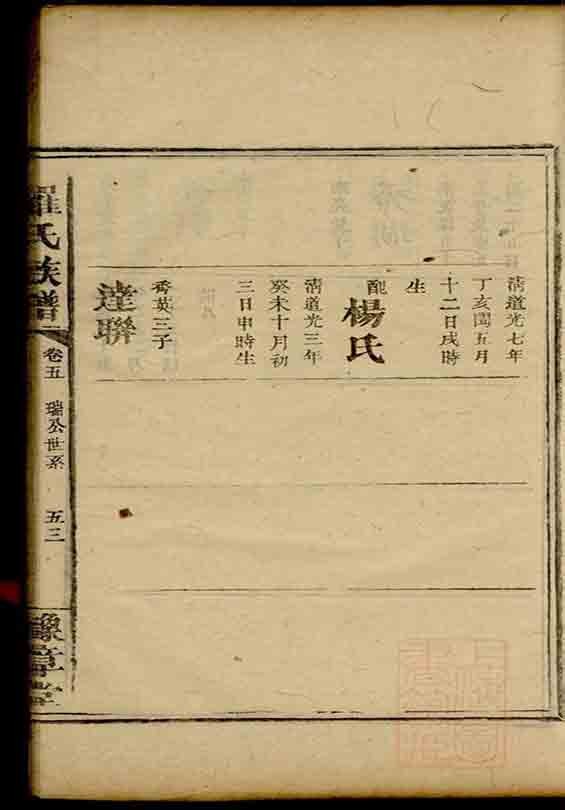 清道光七年
丁亥閏五月
十二日戌時
生
配楊氏
清道光三年
癸未十月初
三日申時生
秀英三子
達聯
羅氏族譜
卷五
瑞公世系
五三
豫章堂